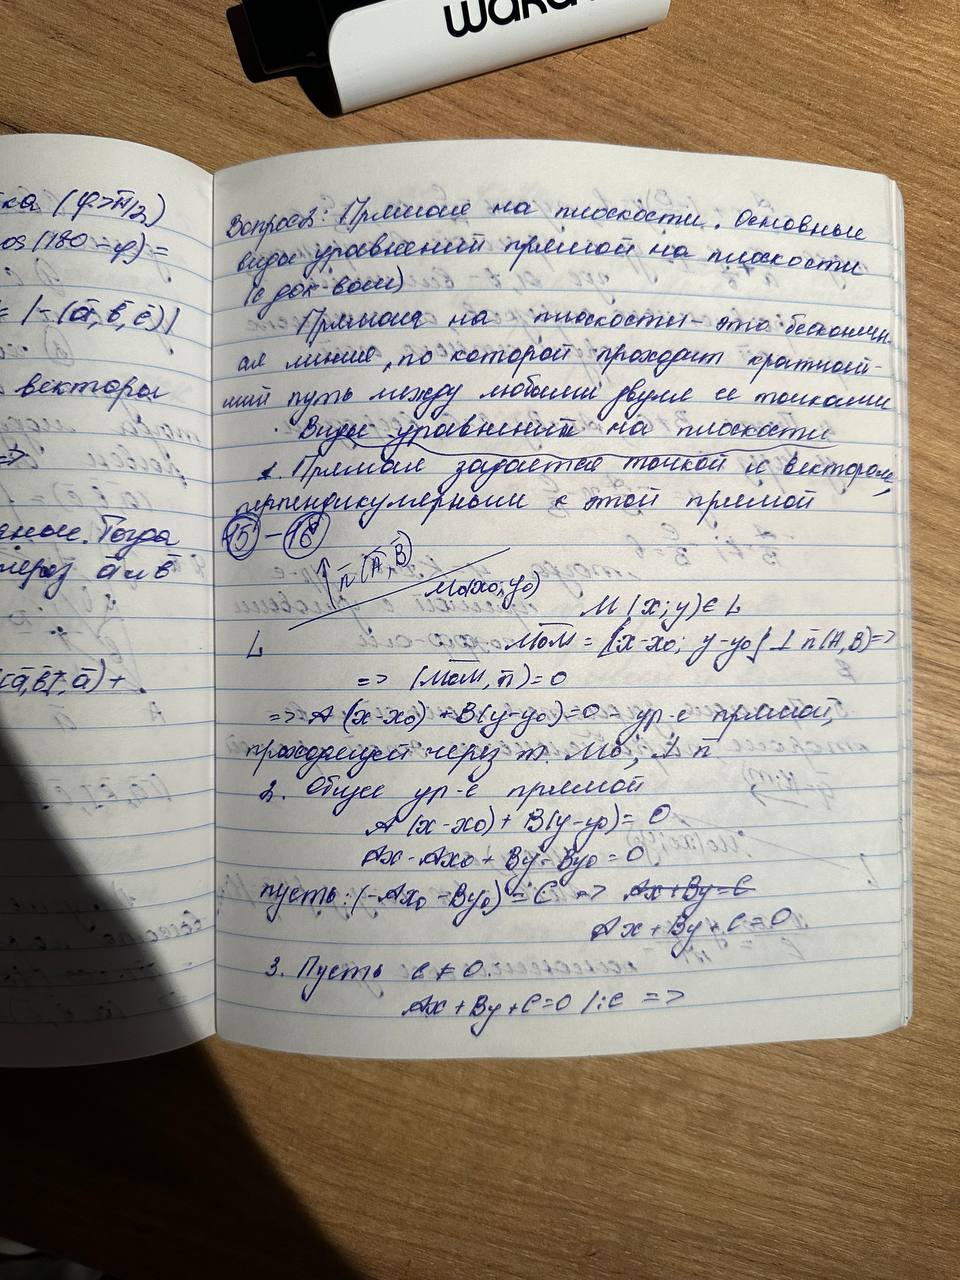 waka
ка (φ>π/2)
os(180-φ)=
= |-(ā, b̄, c̄)|
векторы
=>
Тогда
через ā и b̄
[ā, b̄], ā) +
Вопрос3: Прямая на плоскости. Основные
виды уравнений прямой на плоскости
(с док-вом)
Прямая на плоскости - это бесконечн
ая линия, по которой проходит кратчай-
ший путь между любыми двумя её точками
Виды уравнений на плоскости
1. Прямая задаётся точкой и вектором,
перпендикулярным к этой прямой
15 - 16
n̄ (A, B)
M₀(x₀; y₀)
M (x; y) ∈ L
L
M₀M = {x-x₀; y-y₀} ⊥ n̄ (A, B) =>
=> (M₀M, n̄) = 0
=> A (x-x₀) + B(y-y₀) = 0 - ур-е прямой,
проходящей через т. M₀, ⊥ n̄
2. Общее ур-е прямой
A (x-x₀) + B(y-y₀) = 0
Ax - Ax₀ + By - By₀ = 0
пусть: (-Ax₀ - By₀) = C => Ax+By=C
Ax + By + C = 0
3. Пусть C ≠ 0.
Ax + By + C = 0 /:C =>